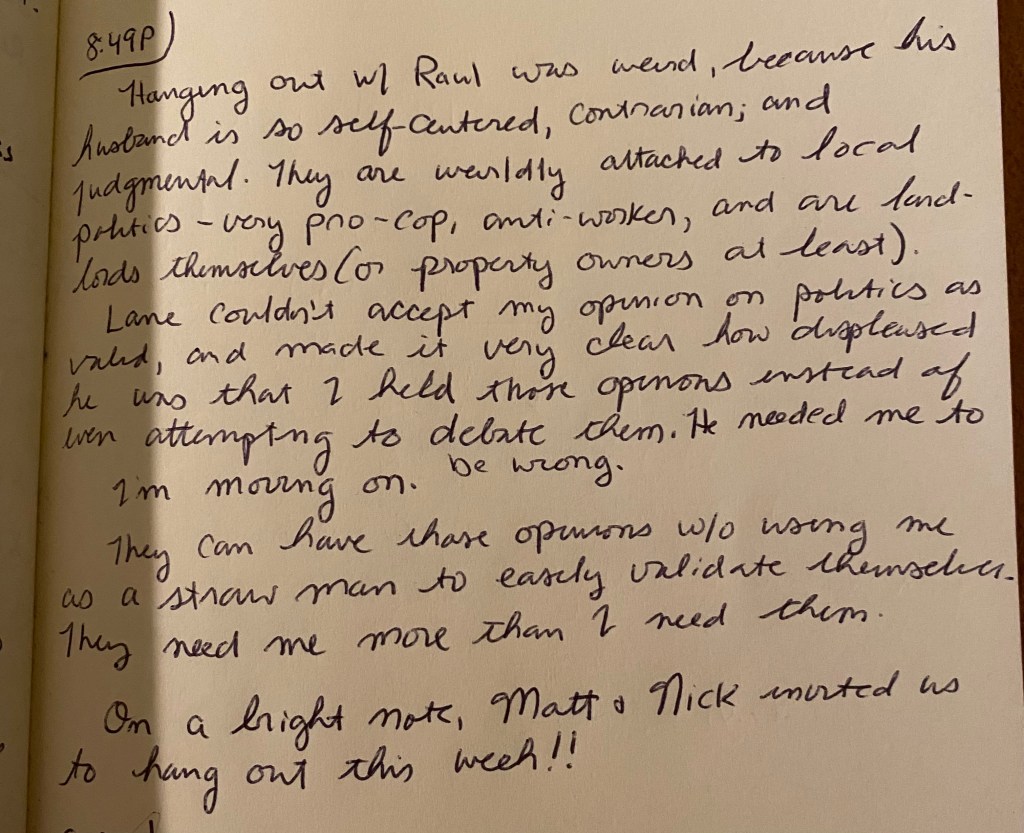 8:49P
Hanging out w/ Raul was weird, because his
husband is so self-centered, contrarian, and
judgmental. They are weirldly attached to local
politics - very pro-cop, anti-worker, and are land-
lords themselves (or property owners at least).
Lane couldn't accept my opinion on politics as
valid, and made it very clear how displeased
he was that I held those opinions instead of
even attempting to debate them. He needed me to
be wrong.
I'm moving on.
They can have those opinions w/o using me
as a straw man to easily validate themselves.
They need me more than I need them.
On a bright note, Matt & Nick invited us
to hang out this week!!